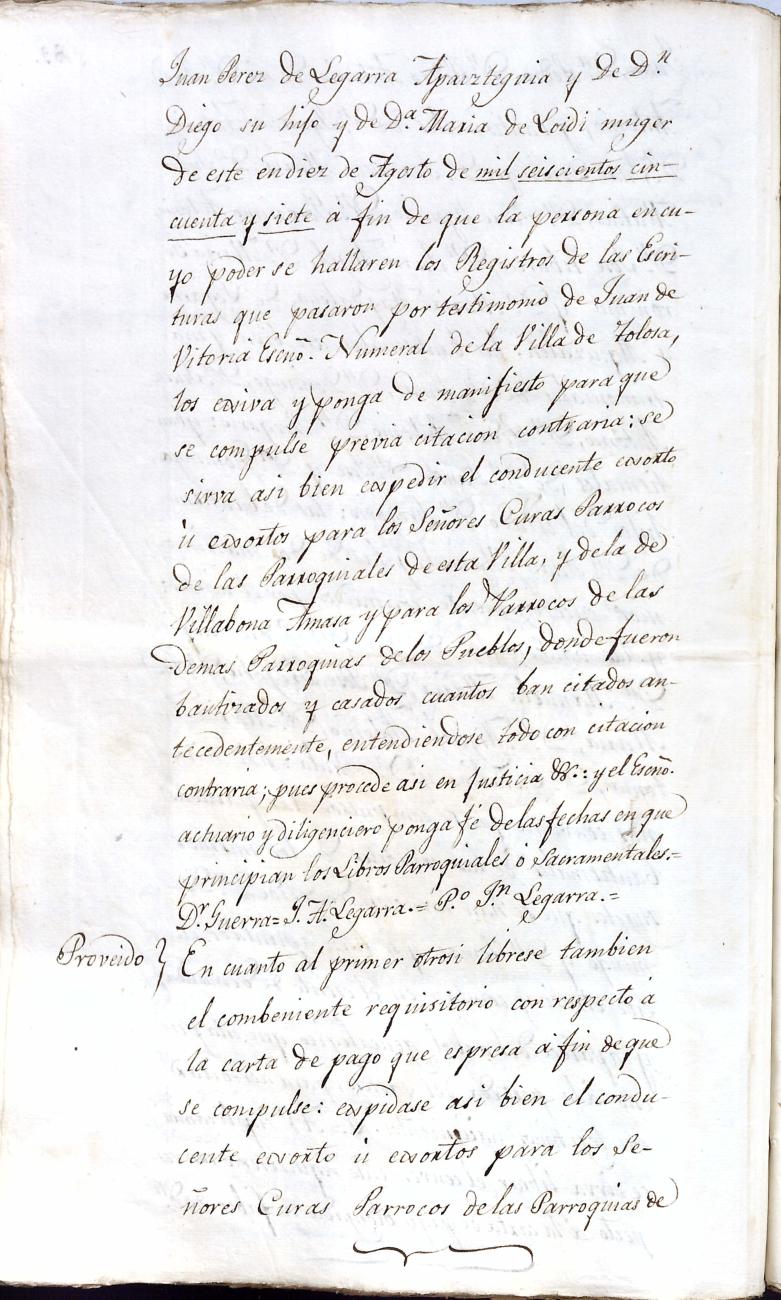 Juan Perez de Legarra Apaizteguia y de D.n
Diego su hijo y de D.a Maria de Loidi muger
de este en diez de Agosto de mil seiscientos cin-
cuenta y siete á fin de que la persona en cu-
yo poder se hallaren los Registros de las Escri-
turas que pasaron por testimonio de Juan de
Vitoria Escño. Numeral de la Villa de Tolosa,
los exiva y ponga de manifiesto para que
se compulse previa citacion contraria: se
sirva asi bien expedir el conducente exorto
ú exortos para los Señores Curas Parrocos
de las Parroquiales de esta Villa, y de la de
Villabona Amasa y para los Parrocos de las
demas Parroquias de los Pueblos, donde fueron
bautizados y casados cuantos ban citados an-
tecedentemente, entendiendose todo con citacion
contraria; pues procede asi en Justicia &.: y el Escño.
actuario y diligenciero ponga fé de las fechas en que
principian los Libros Parroquiales ó Sacramentales.=
D.r Guerra= J. A. Legarra.= P.o J.n Legarra.=
Proveido } En cuanto al primer otrosi librese tambien
el combeniente requisitorio con respecto á
la carta de pago que espresa á fin de que
se compulse: expidase asi bien el condu-
cente exorto ú exortos para los Se-
ñores Curas Parrocos de las Parroquias de